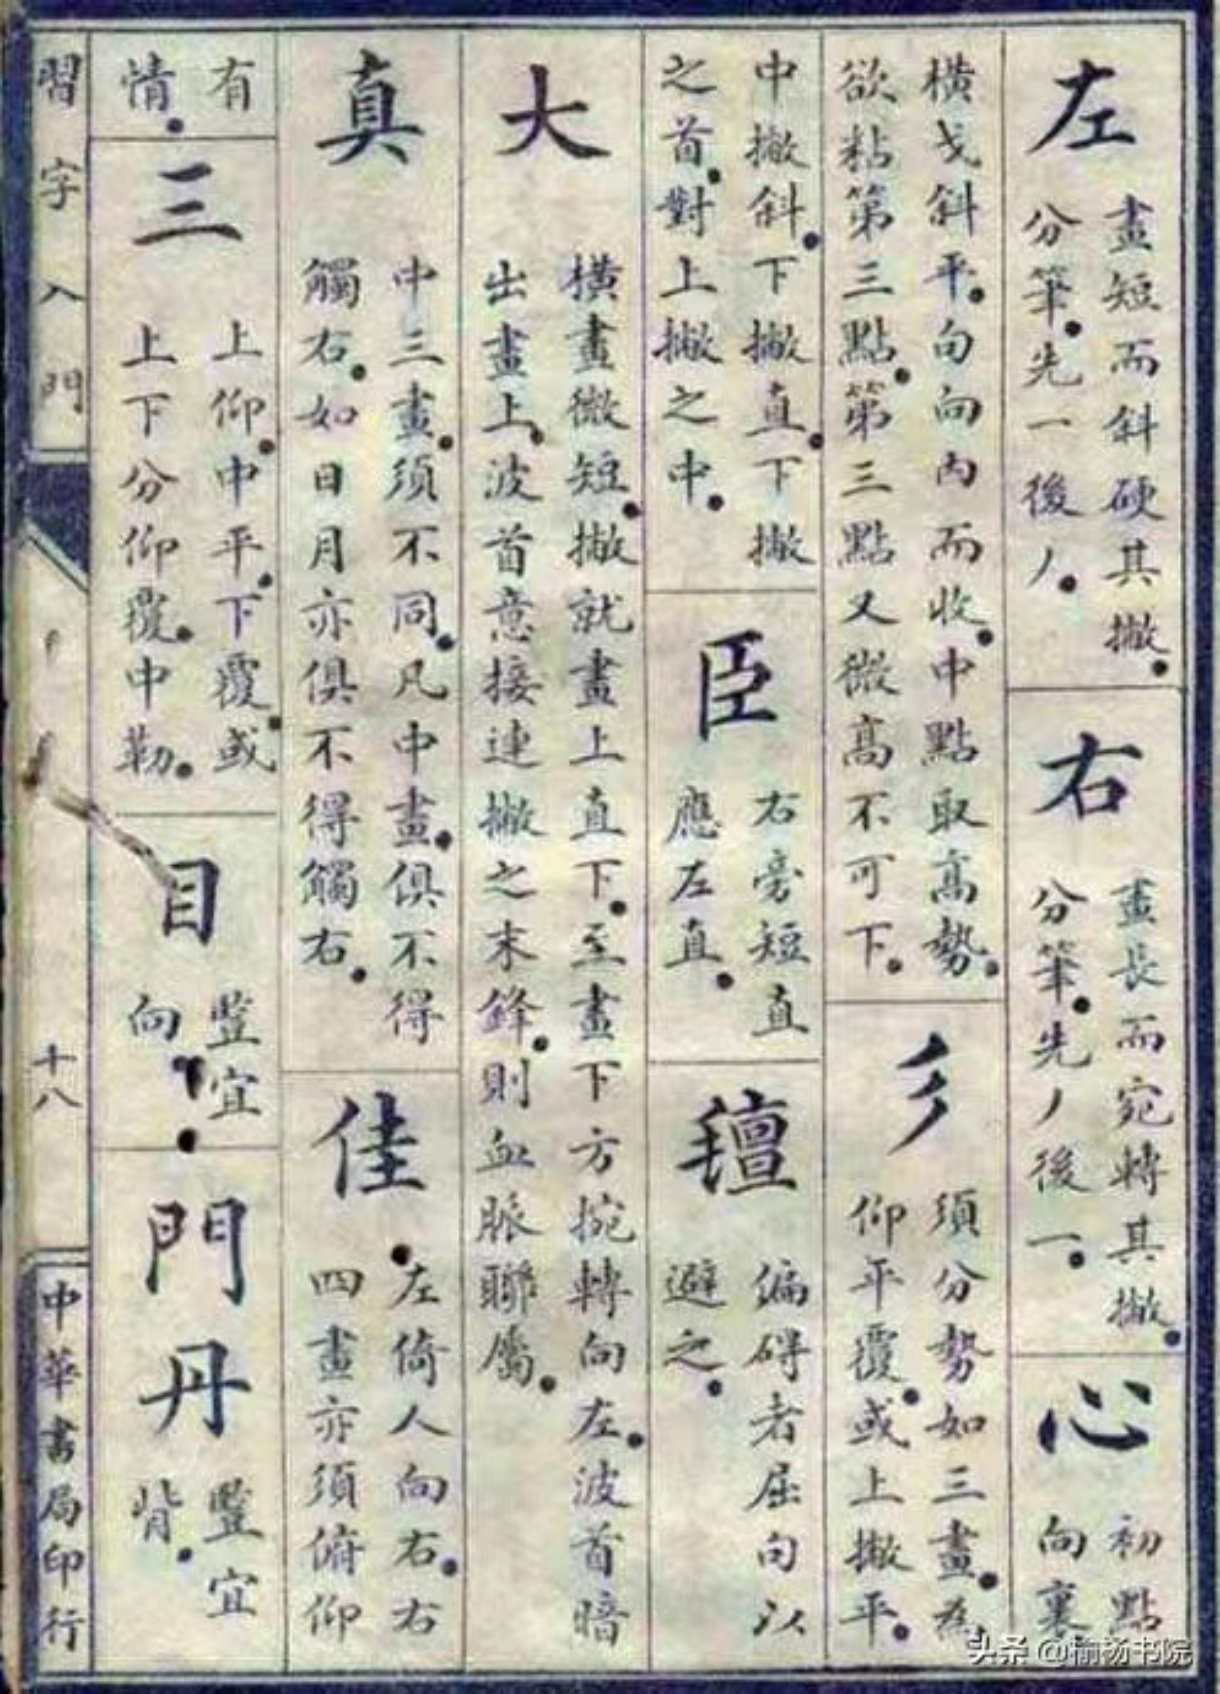 左
畫短而斜硬其撇。
分筆。先一後丿。
右
畫長而宛轉其撇。
分筆。先丿後一。
心
初點
向裏
橫戈斜平。勾向內而收。中點取高勢。
欲粘第三點。第三點又微高不可下。
彡
須分勢如三畫。為
仰平覆。或上撇平。
中撇斜。下撇直。下撇
之首。對上撇之中。
臣
右旁短直
應左直。
䥣
偏碍者屈勾以
避之。
大
橫畫微短。撇就畫上直下。至畫下方捥轉向左。波首暗
出畫上。波首意接連撇之末鋒。則血脈聯屬。
真
中三畫。須不同。凡中畫。俱不得
觸右。如日月亦俱不得觸右。
佳
左倚人向右。右
四畫亦須俯仰
有
情。
三
上仰。中平。下覆。或
上下分仰覆。中勒。
目
豎宜
向。
門丹
豎宜
背。
習字入門
十八
中華書局印行
头条 @榆杨书院